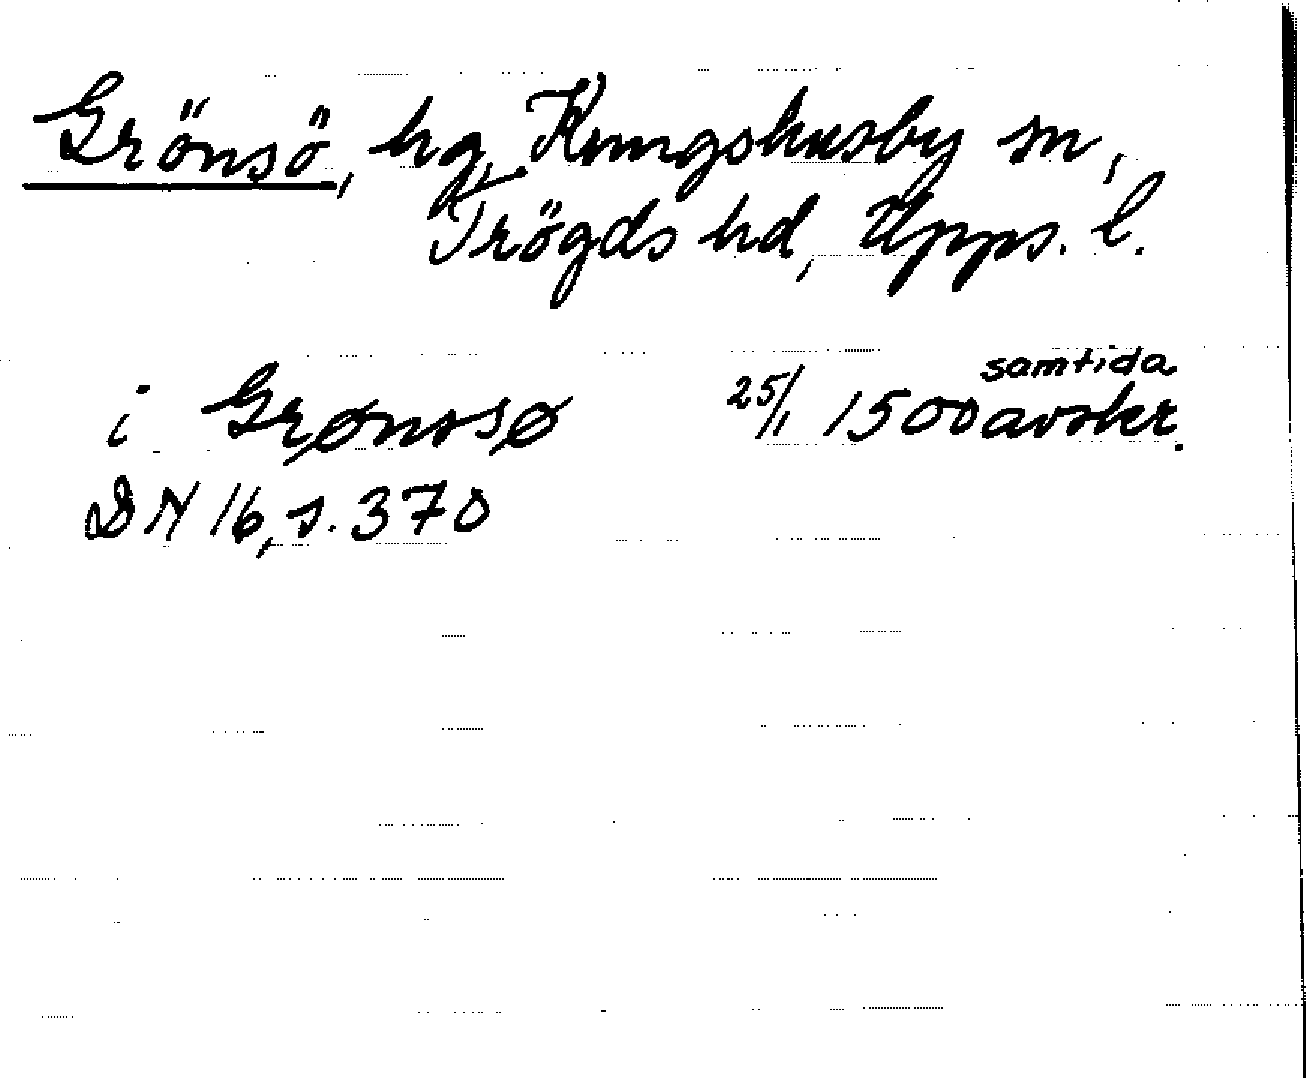 Grönsö, hg, Kungshusby sn,
Trögds hd, Upps. l.
i Grønssø 25/1 1500 samtida avskr.
DN 16, s. 370